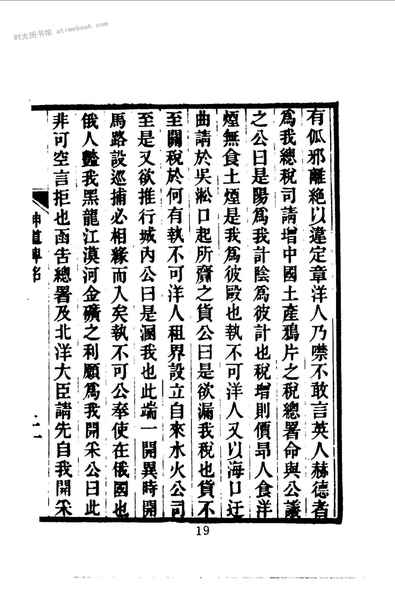 时光图书馆 atimebook.com
有佤邪離絶以違定章洋人乃噤不敢言英人赫德者
爲我總稅司請增中國土產鴉片之稅總署命與公議
之公曰是陽爲我計陰爲彼計也稅增則價昂人食洋
煙無食土煙是我爲彼敺也執不可洋人又以海口迂
曲請於吳淞口起所齎之貨公曰是欲漏我稅也貨不
至關稅於何有執不可洋人租界設立自來水火公司
至是又欲推行城內公曰是溷我也此端一開異時開
馬路設巡捕必相緣而入矣執不可公奉使在俄國也
俄人豔我黑龍江漠河金礦之利願爲我開采公曰此
非可空言拒也函告總署及北洋大臣請先自我開采
神道碑銘
19